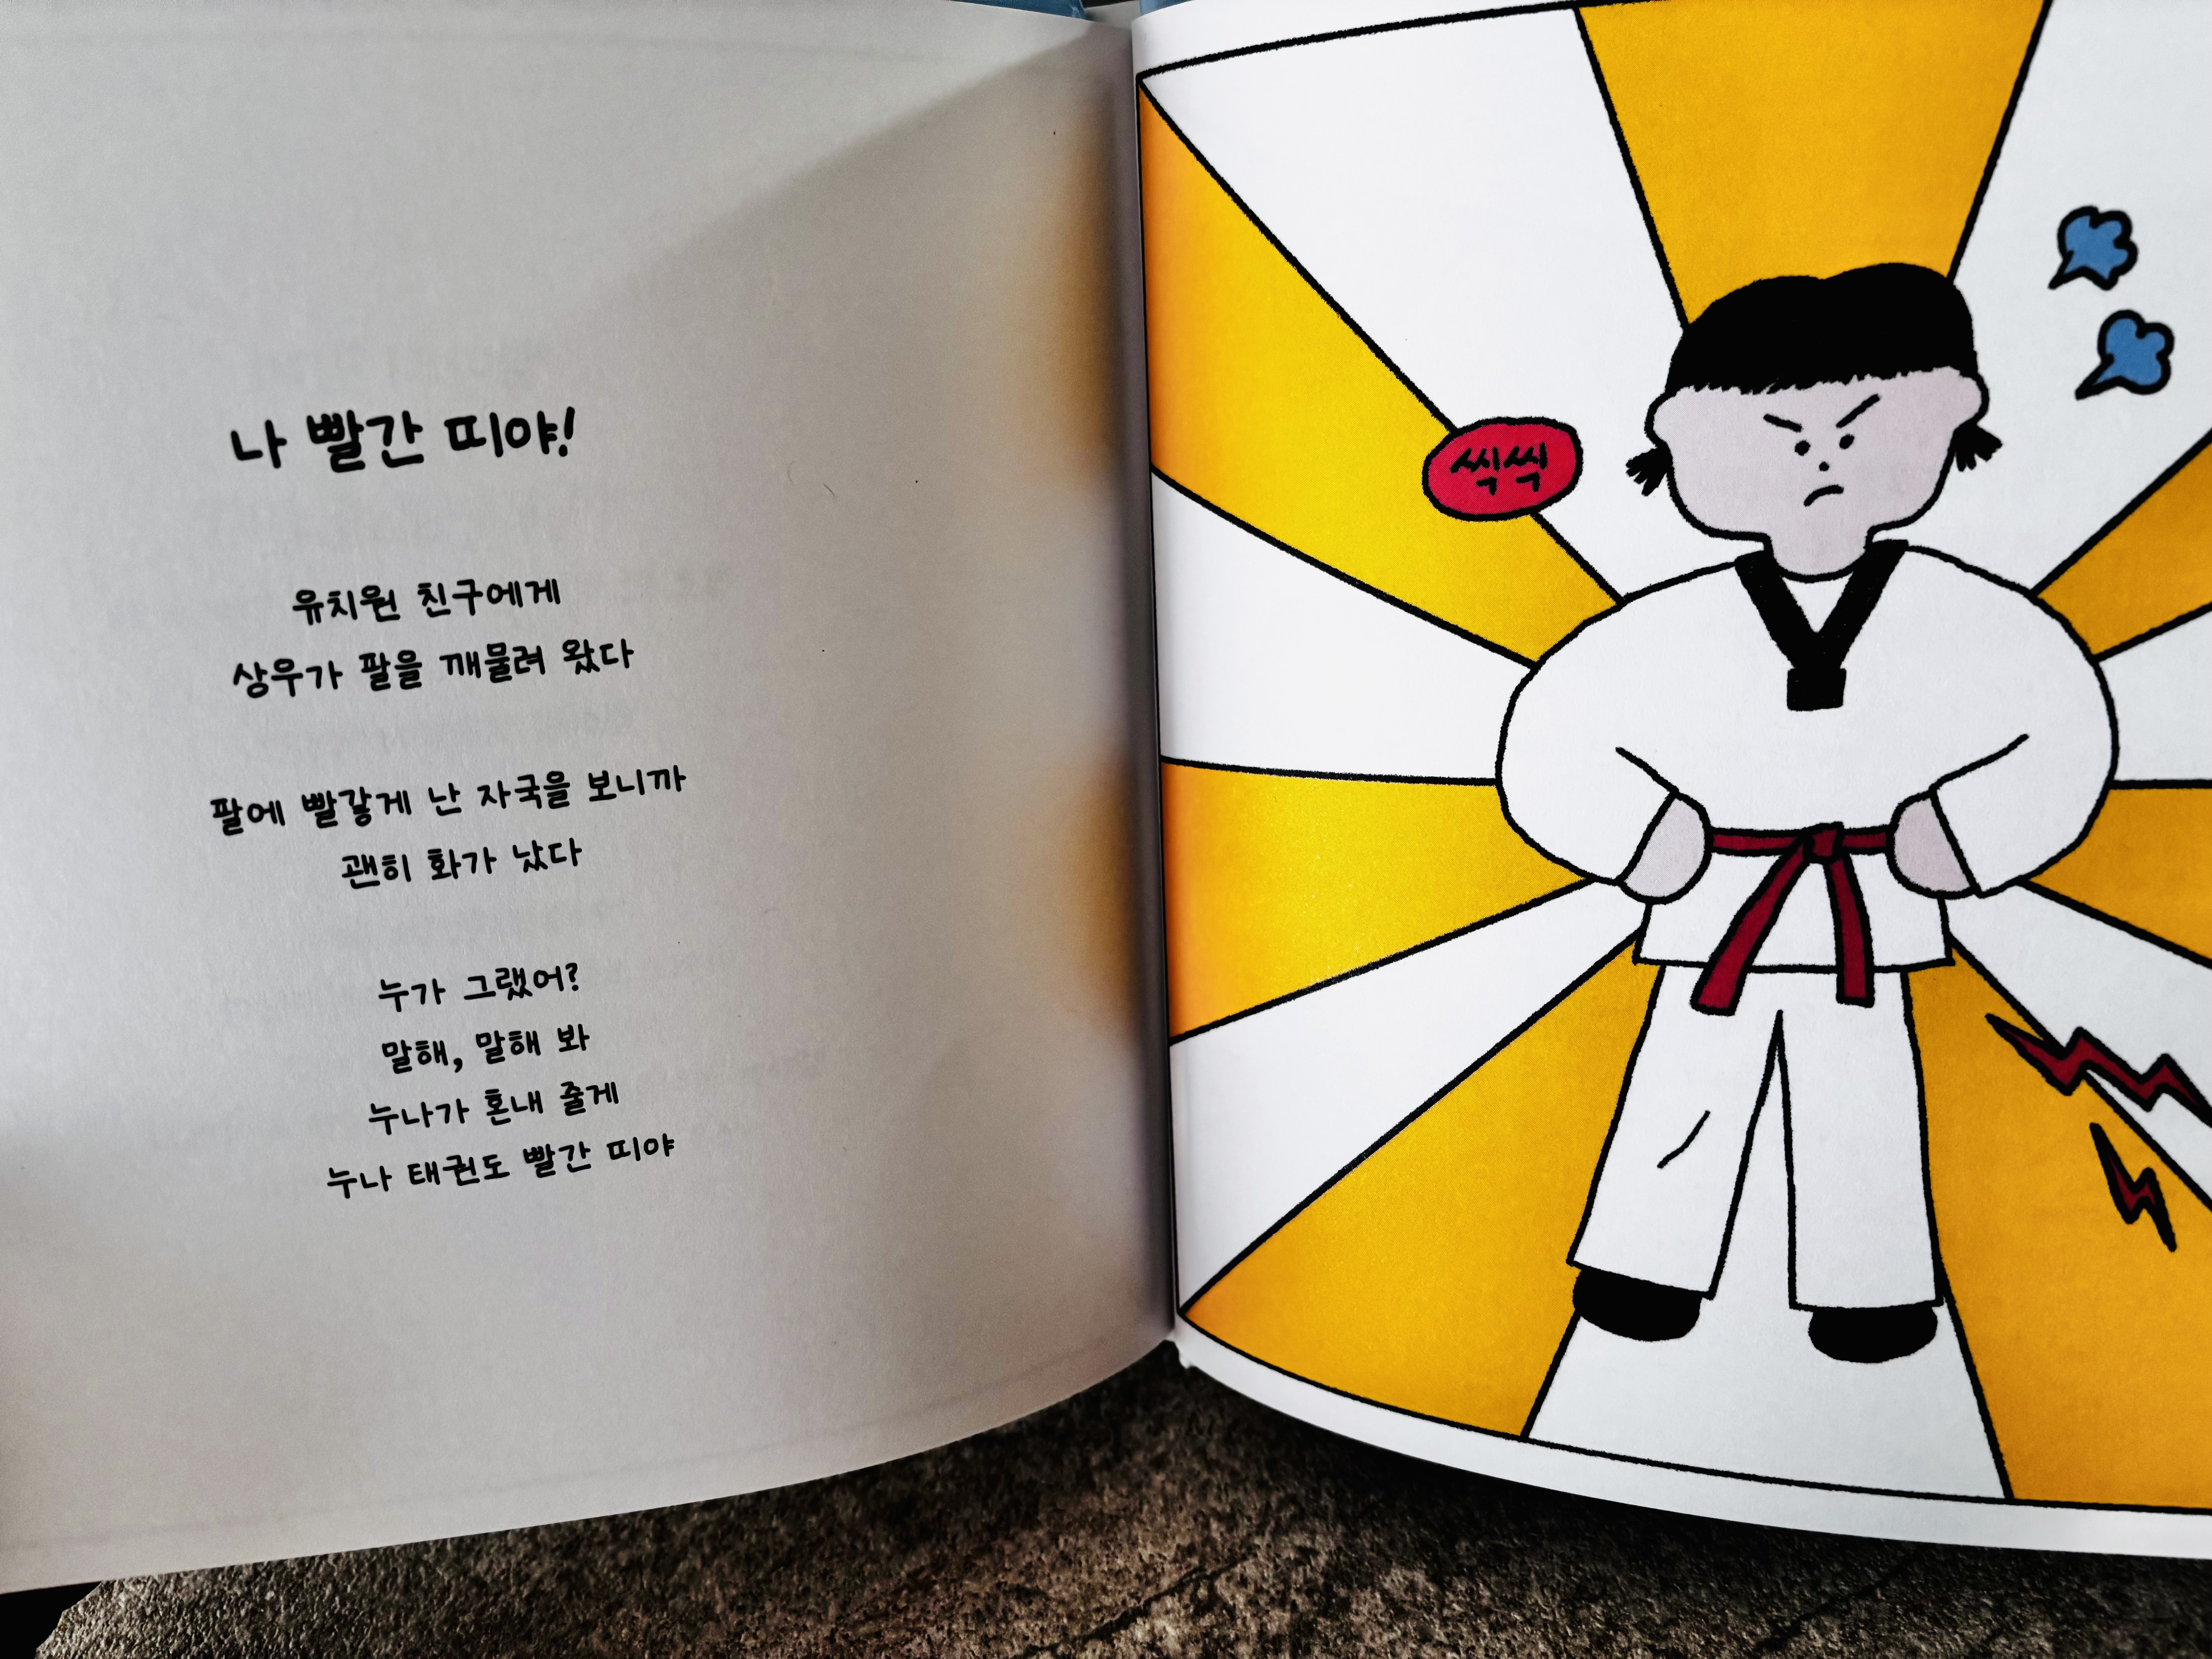 나 빨간 띠야!
유치원 친구에게
상우가 팔을 깨물려 왔다
팔에 빨갛게 난 자국을 보니까
괜히 화가 났다
누가 그랬어?
말해, 말해 봐
누나가 혼내 줄게
누나 태권도 빨간 띠야
씩씩